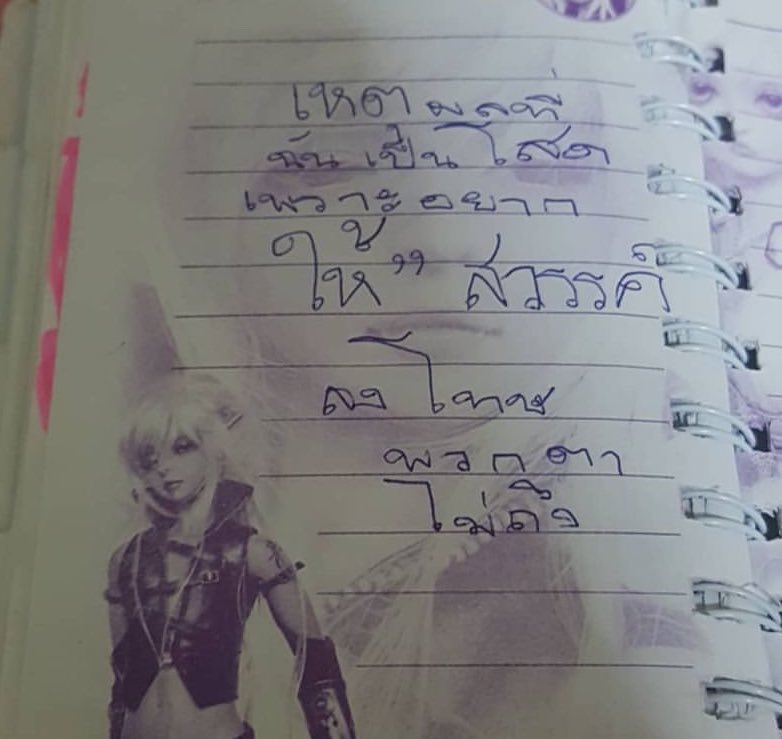 เหตุผลที่
ฉันเป็นโสด
เพราะอยาก
ให้" สวรรค์
ลงโทษ
พวกตา
ไม่ถึง